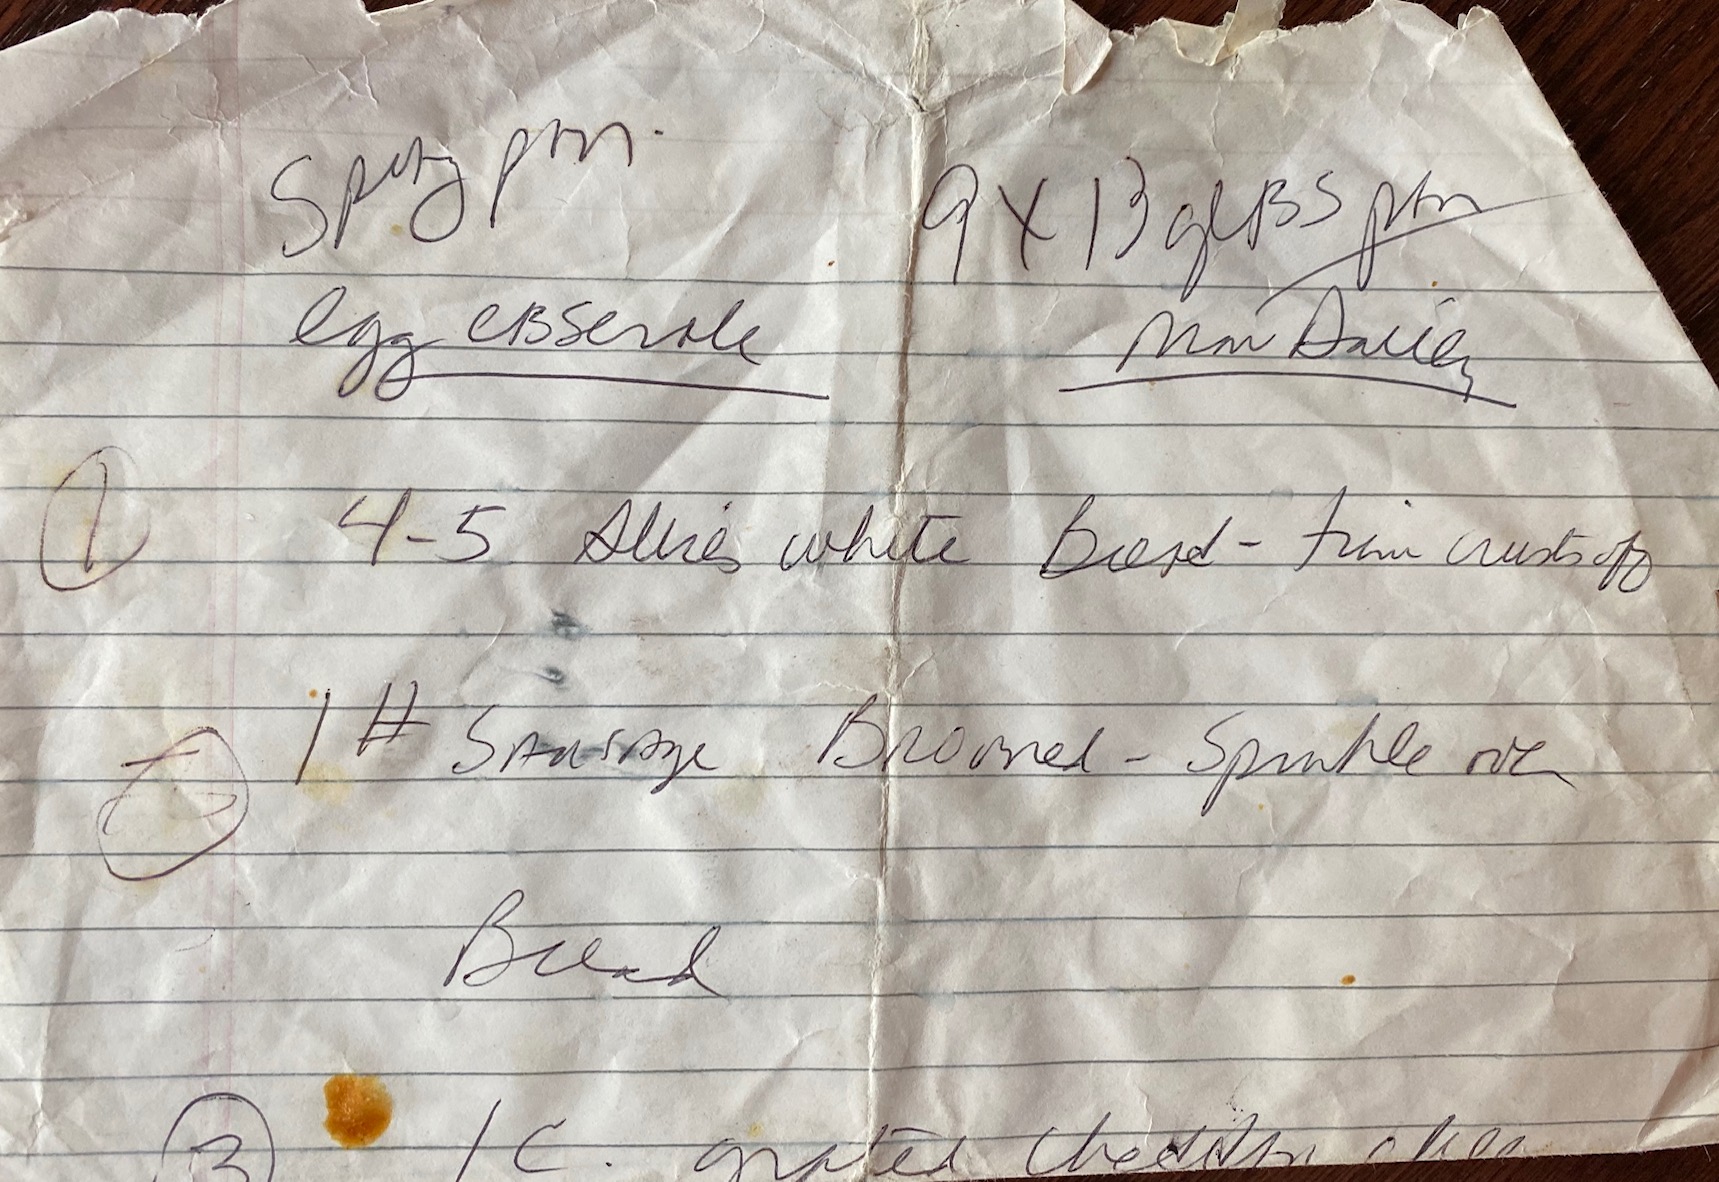 Spray pan.
9 x 13 glass pan
egg casserole
① 4-5 slices white Bread - trim crusts off
② 1 # Sausage Browned - Sprinkle over
Bread
③ 1 C. grated Cheddar